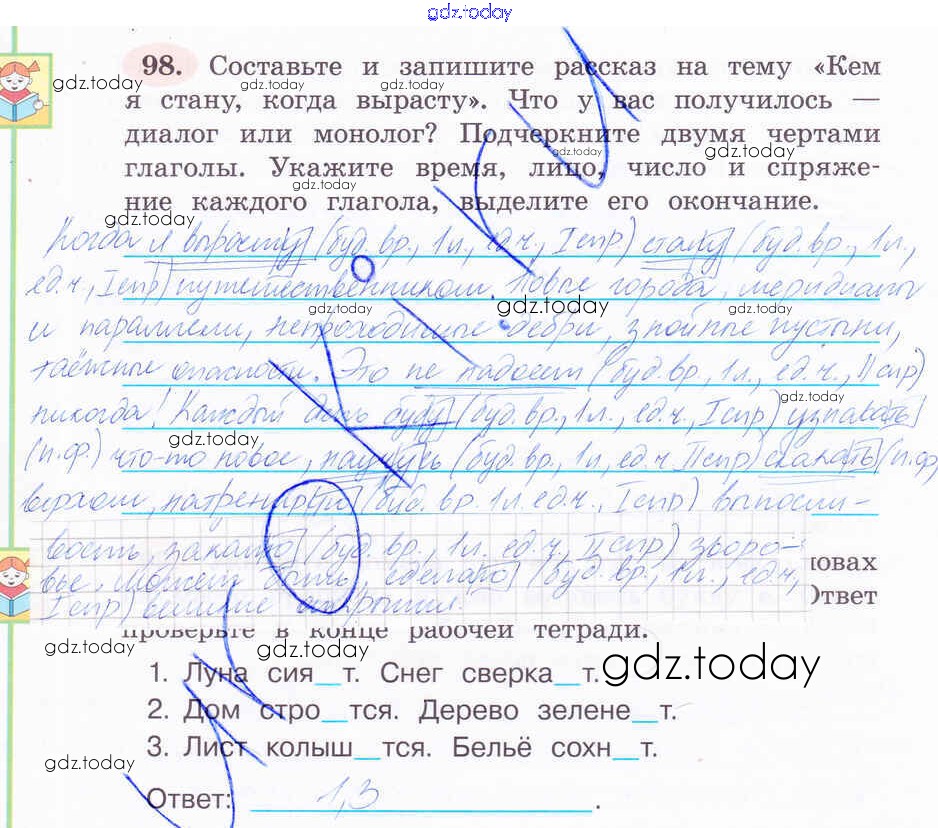 gdz.today
98. Составьте и запишите рассказ на тему «Кем
gdz.today gdz.today gdz.today
я стану, когда вырасту». Что у вас получилось —
диалог или монолог? Подчеркните двумя чертами
gdz.today gdz.today
глаголы. Укажите время, лицо, число и спряже-
gdz.today
ние каждого глагола, выделите его окончание.
gdz.today
Когда я вырасту (буд. вр., 1л., ед.ч., I спр.) стану (буд. вр., 1л.,
gdz.today
ед.ч, I спр) путешественником. Новые города, меридианы
gdz.today gdz.today gdz.today
и параллели, непроходимые дебри, знойные пустыни,
таёжные опасности. Это не надоест (буд. вр, 1л., ед.ч., II спр)
никогда! Каждый день буду (буд. вр., 1л., ед.ч, I спр) узнавать
gdz.today gdz.today
(н.ф.) что-то новое, научусь (буд. вр, 1л, ед.ч II спр) скакать (н.ф,
gdz.today gdz.today
верхом, натренирую (буд. вр. 1л. ед.ч., I спр) выносли-
вость, закалю (буд. вр., 1л. ед.ч, II спр) здоро-
вье. Может быть, сделаю (буд. вр., 1л., ед.ч, ловах
I спр) великие открытия. Ответ
проверьте в конце рабочей тетради.
gdz.today gdz.today gdz.today
1. Луна сия_т. Снег сверка_т.
2. Дом стро_тся. Дерево зелене_т.
3. Лист колыш_тся. Бельё сохн_т.
gdz.today gdz.today
Ответ: 1,3.